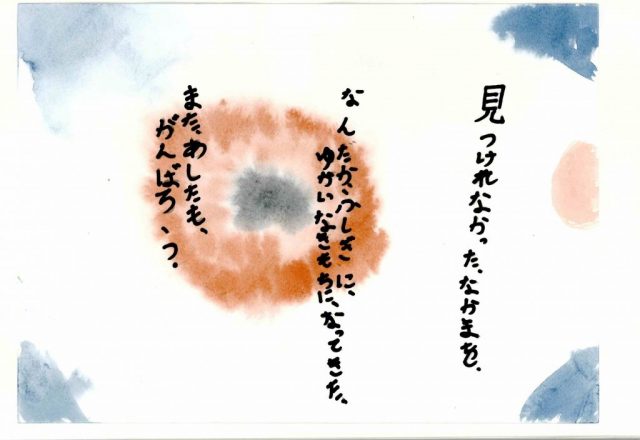 見つけれなかった、なかまを、
なんたか、ふしぎに、
ゆかいなきもちに、なってきた、
また、あしたも、
がんばろぅ。